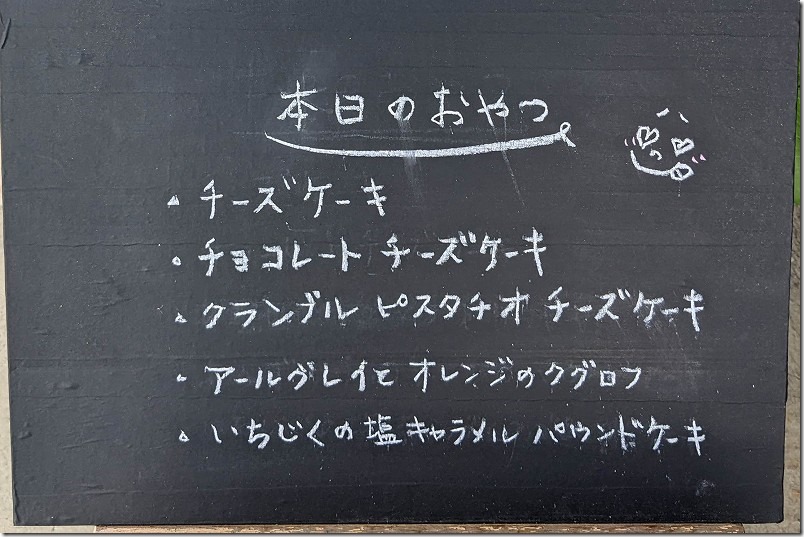 本日のおやつ
・チーズケーキ
・チョコレート チーズケーキ
・クランブル ピスタチオ チーズケーキ
・アールグレイと オレンジのクグロフ
・いちじくの塩キャラメル パウンドケーキ